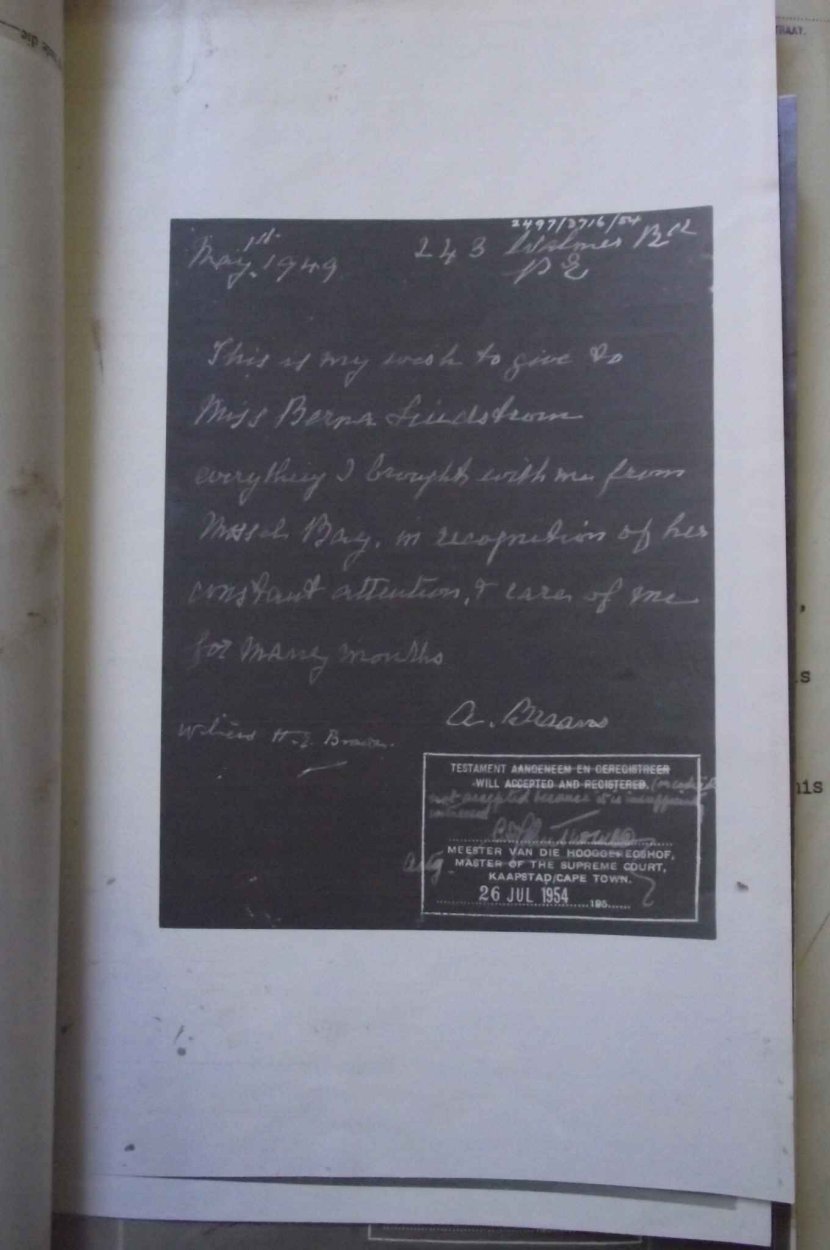 RAAT.
2497/3716/54
May 1st 1949
243 Walmer Rd
P E
This is my wish to give to
Miss Berna Lindstrom
everything I brought with me from
Mossel Bay, in recognition of her
constant attention, & care of me
for many months
A.
witness H. E.
TESTAMENT AANGENEEM EN GEREGISTREER
WILL ACCEPTED AND REGISTERED.
not accepted because it is
MEESTER VAN DIE HOOGGEREGSHOF,
MASTER OF THE SUPREME COURT,
KAAPSTAD/CAPE TOWN.
26 JUL 1954 195
s
his